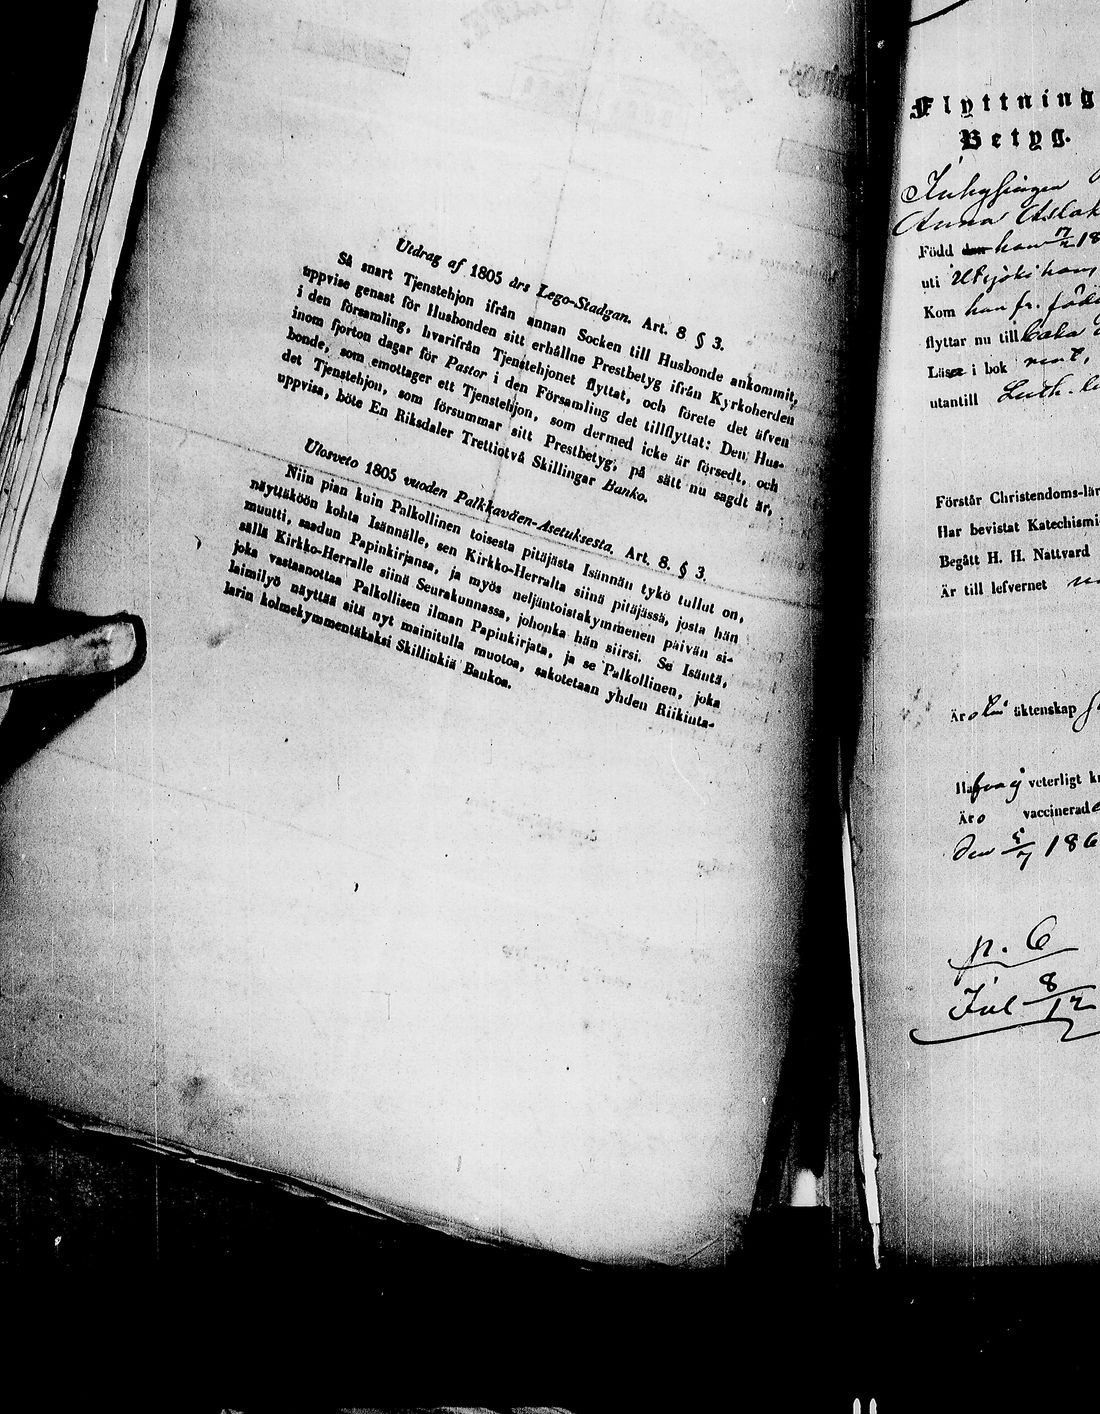 Utdrag af 1805 års Lego-Stadgan. Art. 8 § 3.
Så snart Tjenstehjon ifrån annan Socken till Husbonde ankommit,
uppvise genast för Husbonden sitt erhållne Prestbetyg ifrån Kyrkoherden
i den församling, hvarifrån Tjenstehjonet flyttat, och förete det äfven
inom fjorton dagar för Pastor i den Församling det tillflyttat: Den Hus-
bonde, som emottager ett Tjenstehjon, som dermed icke är försedt, och
det Tjenstehjon, som försummar sitt Prestbetyg, på sätt nu sagdt är,
uppvisa, böte En Riksdaler Trettiotvå Skillingar Banko.
Ulosveto 1805 vuoden Palkkaväen-Asetuksesta. Art. 8. § 3.
Niin pian kuin Palkollinen toisesta pitäjästä Isännän tykö tullut on,
näyttäköön kohta Isännälle, sen Kirkko-Herralta siinä pitäjässä, josta hän
muutti, saadun Papinkirjansa, ja myös neljäntoistakymmenen päivän si-
sällä Kirkko-Herralle siinä Seurakunnassa, johonka hän siirsi. Se Isäntä,
joka vastaanottaa Palkollisen ilman Papinkirjata, ja se Palkollinen, joka
laimilyö näyttää sitä nyt mainitulla muotoa, sakotetaan yhden Riikinta-
larin kolmekymmentäkaksi Skillinkiä Bankoa.
Flyttning
Betyg.
Anna Aslak
Född
uti
Kom
flyttar nu till
Läse i bok
utantill Luth.
Förstår Christendoms-lär
Har bevistat Katechismi
Begått H. H. Nattvard
Är till lefvernet
Äro äktenskap
Hafva ej veterligt
Äro vaccinerade
den 5/7 186
p. 6
Jul 8/12